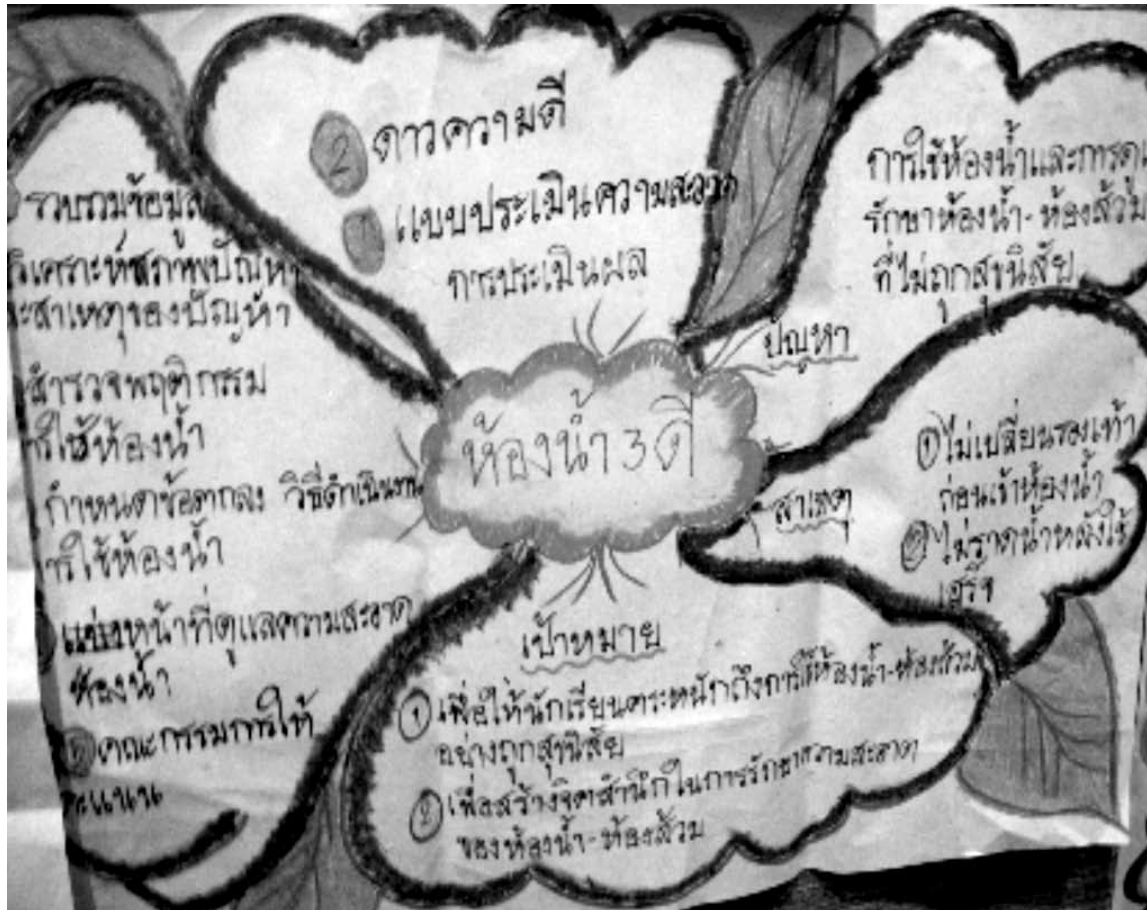 ห้องน้ำ 3 ดี
② ดาวความดี
① แบบประเมินความสะอาด
การประเมินผล
ปัญหา
การใช้ห้องน้ำและการดูแ
รักษาห้องน้ำ-ห้องส้วม
ที่ไม่ถูกสุขนิสัย
สาเหตุ
① ไม่เปลี่ยนรองเท้า
ก่อนเข้าห้องน้ำ
② ไม่ราดน้ำหลังใช้
เสร็จ
เป้าหมาย
① เพื่อให้นักเรียนตระหนักถึงการใช้ห้องน้ำ-ห้องส้วม
อย่างถูกสุขนิสัย
② เพื่อสร้างจิตสำนึกในการรักษาความสะอาด
ของห้องน้ำ-ห้องส้วม
วิธีดำเนินงาน
รวบรวมข้อมูล
วิเคราะห์สภาพปัญหา
ะสาเหตุของปัญหา
สำรวจพฤติกรรม
ารใช้ห้องน้ำ
กำหนดข้อตกลง
ารใช้ห้องน้ำ
แบ่งหน้าที่ดูแลความสะอาด
ห้องน้ำ
⑤ คณะกรรมการให้
คะแนน